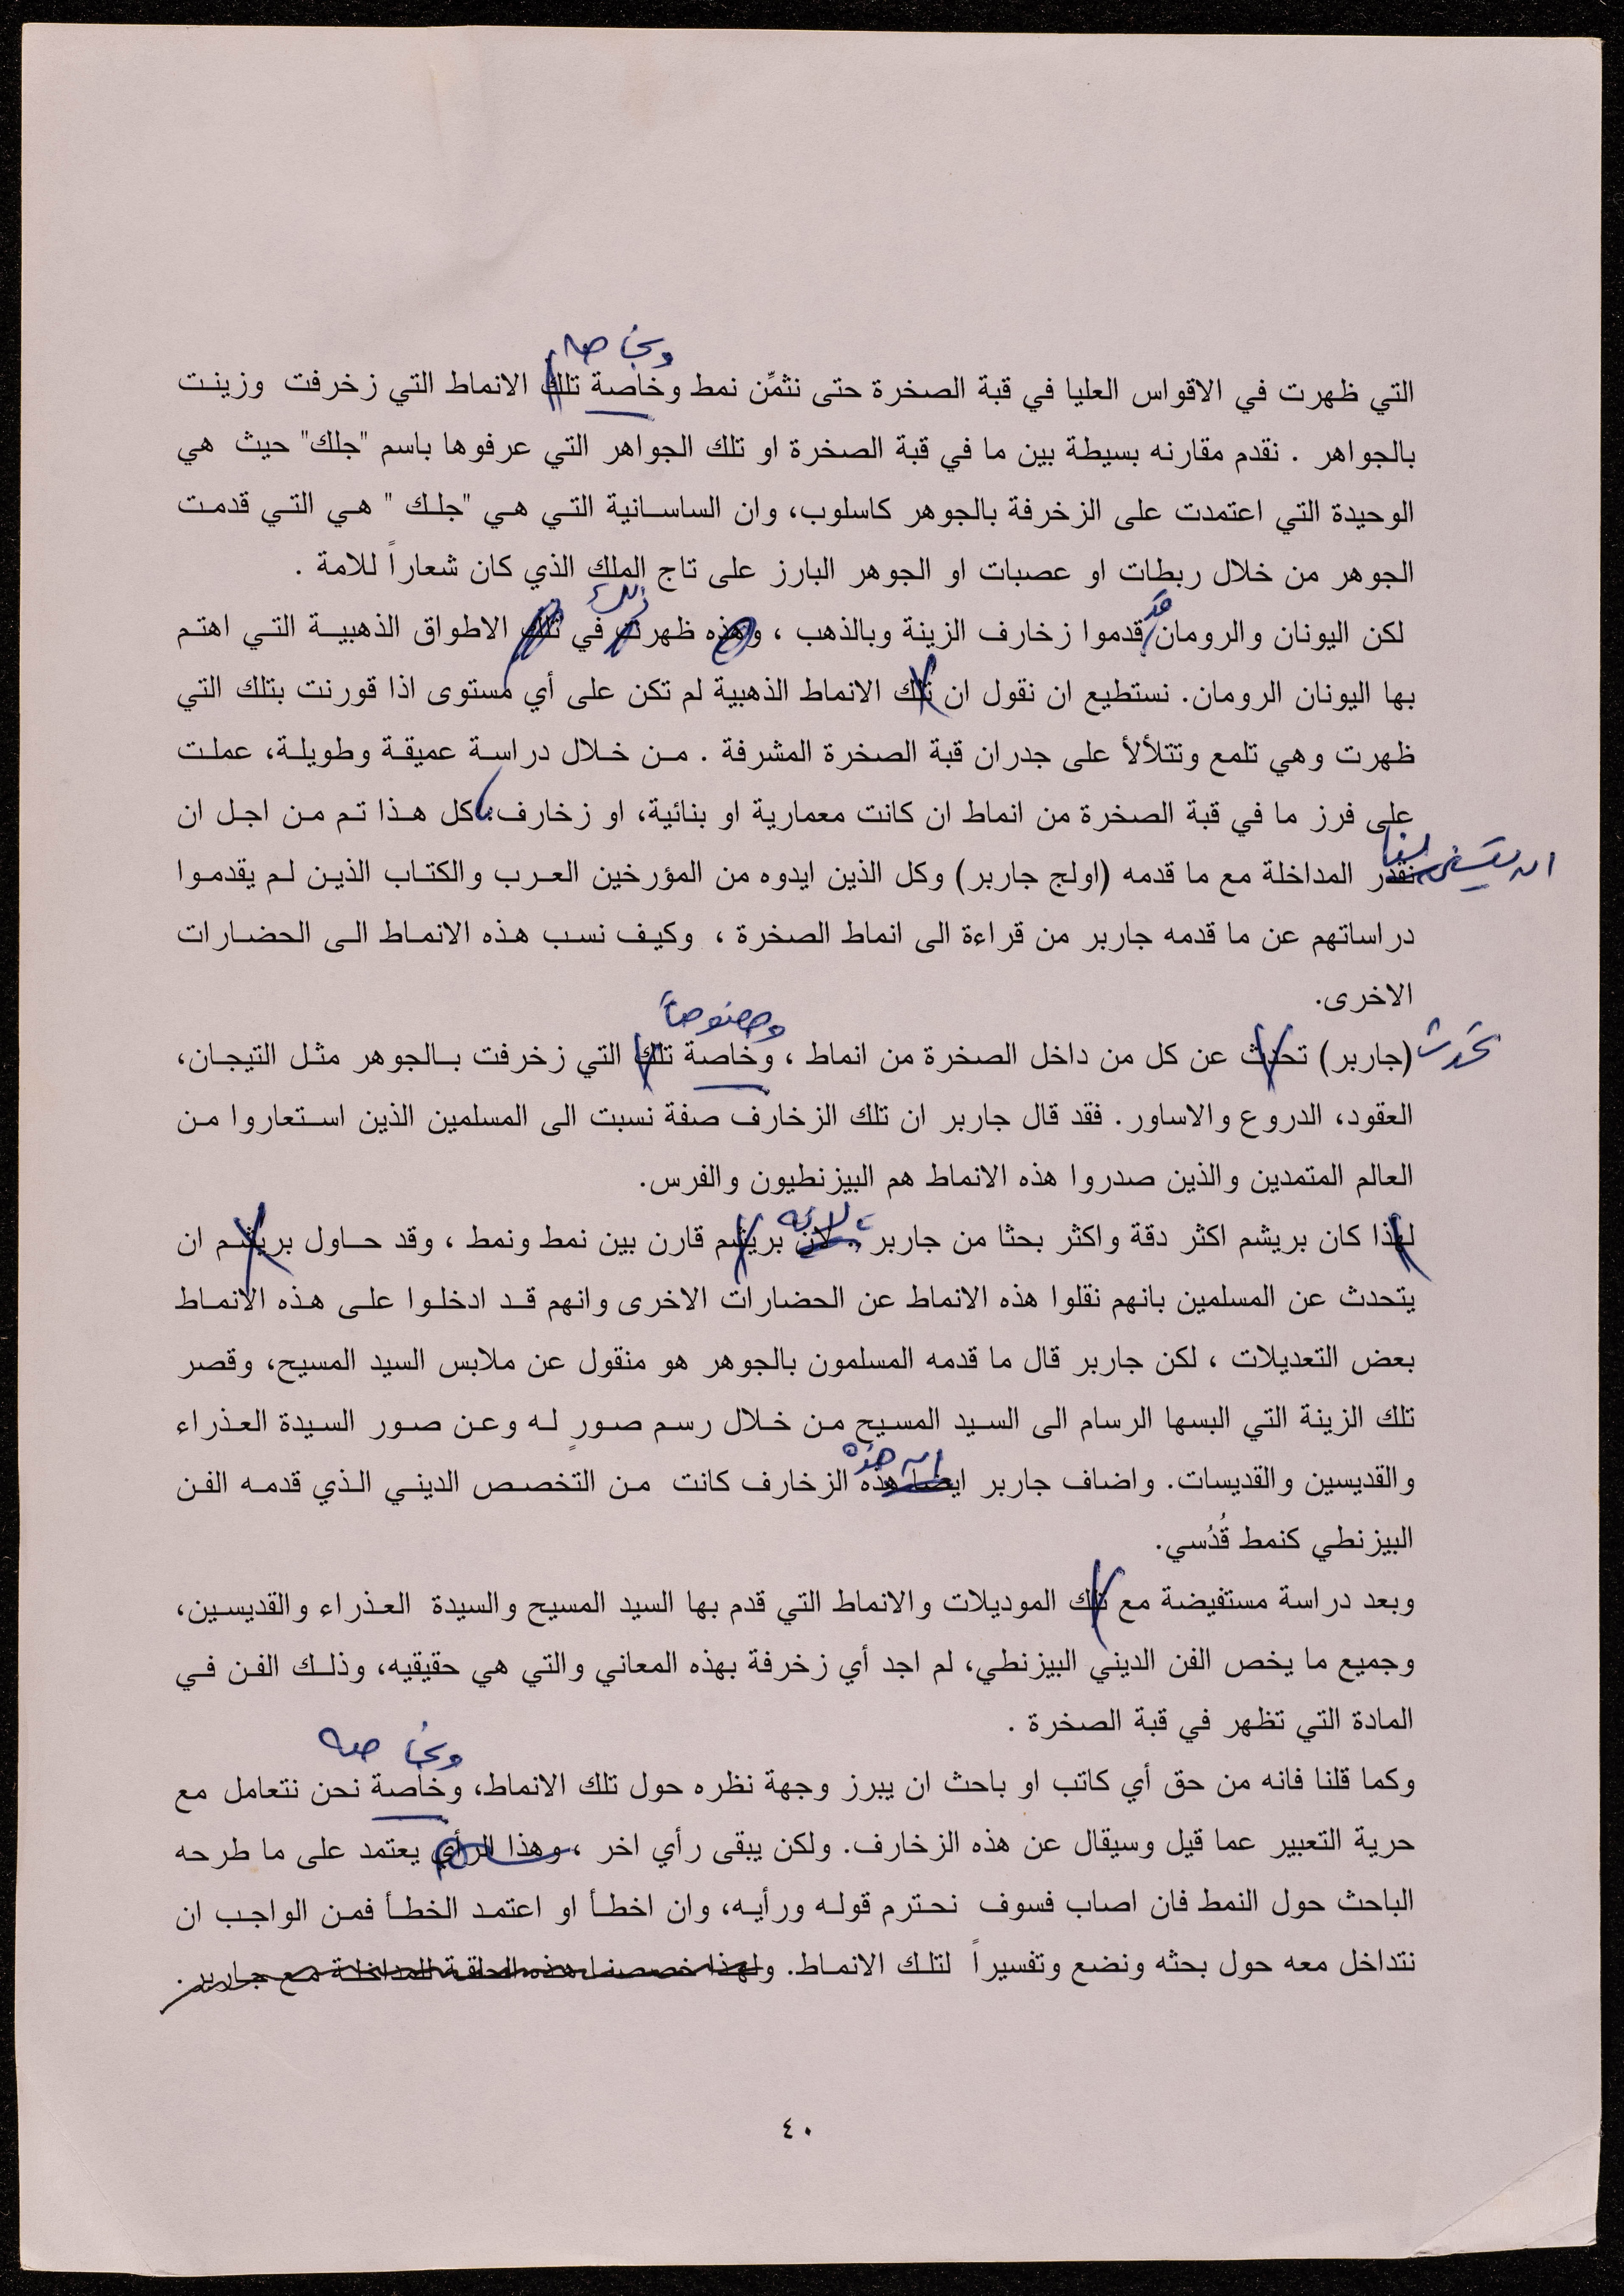 وبخاصة
التي ظهرت في الاقواس العليا في قبة الصخرة حتى نثمِّن نمط وخاصة تلك الانماط التي زخرفت وزينت
بالجواهر . نقدم مقارنه بسيطة بين ما في قبة الصخرة او تلك الجواهر التي عرفوها باسم "جلك" حيث هي
الوحيدة التي اعتمدت على الزخرفة بالجوهر كاسلوب، وان الساسانية التي هي "جلك " هي التي قدمت
الجوهر من خلال ربطات او عصبات او الجوهر البارز على تاج الملك الذي كان شعاراً للامة .
قد
لكن اليونان والرومان قدموا زخارف الزينة وبالذهب ، وهذه ظهرت في تلك الاطواق الذهبية التي اهتم
بها اليونان الرومان. نستطيع ان نقول ان تلك الانماط الذهبية لم تكن على أي مستوى اذا قورنت بتلك التي
ظهرت وهي تلمع وتتلألأ على جدران قبة الصخرة المشرفة . من خلال دراسة عميقة وطويلة، عملت
على فرز ما في قبة الصخرة من انماط ان كانت معمارية او بنائية، او زخارف، كل هذا تم من اجل ان
ان يتسنى لنا
نقدر المداخلة مع ما قدمه (اولج جاربر) وكل الذين ايدوه من المؤرخين العرب والكتاب الذين لم يقدموا
دراساتهم عن ما قدمه جاربر من قراءة الى انماط الصخرة ، وكيف نسب هذه الانماط الى الحضارات
الاخرى.
وخصوصاً
تحدث (جاربر) تحدث عن كل من داخل الصخرة من انماط ، وخاصة تلك التي زخرفت بالجوهر مثل التيجان،
العقود، الدروع والاساور. فقد قال جاربر ان تلك الزخارف صفة نسبت الى المسلمين الذين استعاروا من
العالم المتمدين والذين صدروا هذه الانماط هم البيزنطيون والفرس.
، لانه
لهذا كان بريشم اكثر دقة واكثر بحثا من جاربر . لان بريشم قارن بين نمط ونمط ، وقد حاول بريشم ان
يتحدث عن المسلمين بانهم نقلوا هذه الانماط عن الحضارات الاخرى وانهم قد ادخلوا على هذه الانماط
بعض التعديلات ، لكن جاربر قال ما قدمه المسلمون بالجوهر هو منقول عن ملابس السيد المسيح، وقصر
تلك الزينة التي البسها الرسام الى السيد المسيح من خلال رسم صورٍ له وعن صور السيدة العذراء
ان هذه
والقديسين والقديسات. واضاف جاربر ايضا هذه الزخارف كانت من التخصص الديني الذي قدمه الفن
البيزنطي كنمط قُدُسي.
وبعد دراسة مستفيضة مع تلك الموديلات والانماط التي قدم بها السيد المسيح والسيدة العذراء والقديسين،
وجميع ما يخص الفن الديني البيزنطي، لم اجد أي زخرفة بهذه المعاني والتي هي حقيقيه، وذلك الفن في
المادة التي تظهر في قبة الصخرة .
وبخاصة
وكما قلنا فانه من حق أي كاتب او باحث ان يبرز وجهة نظره حول تلك الانماط، وخاصة نحن نتعامل مع
حرية التعبير عما قيل وسيقال عن هذه الزخارف. ولكن يبقى رأي اخر ، وهذا الرأي يعتمد على ما طرحه
الباحث حول النمط فان اصاب فسوف نحترم قوله ورأيه، وان اخطأ او اعتمد الخطأ فمن الواجب ان
نتداخل معه حول بحثه ونضع وتفسيراً لتلك الانماط. ولهذا خصصنا هذه الحلقة للمداخلة مع جاربر.
٤٠